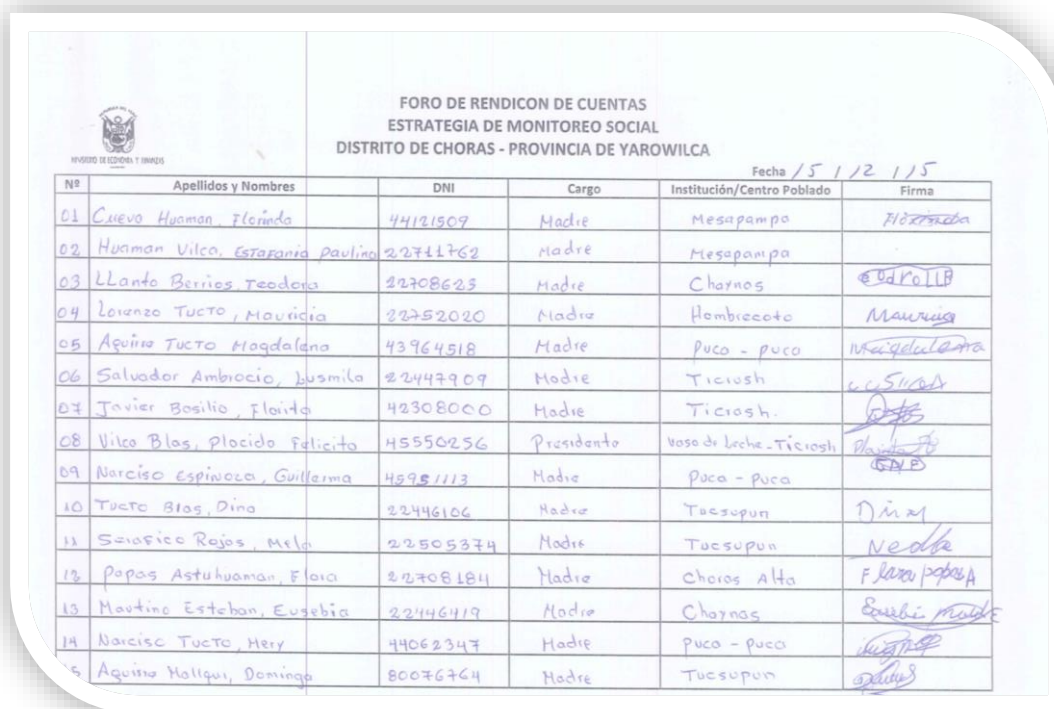 FORO DE RENDICON DE CUENTAS
ESTRATEGIA DE MONITOREO SOCIAL
DISTRITO DE CHORAS - PROVINCIA DE YAROWILCA
MINISTERIO DE ECONOMIA Y FINANZAS
Fecha 15 / 12 / 15
Nº Apellidos y Nombres DNI Cargo Institución/Centro Poblado Firma
01 Cuevo Huaman, Florinda 44121509 Madre Mesapampa
02 Huaman Vilca, Estafania Paulina 22711762 Madre Mesapampa
03 LLanto Berrios, Teodora 22708623 Madre Chaynos
04 Lorenzo Tucto, Mauricia 22752020 Madre Hombrecoto
05 Aquino Tucto Magdalena 43964518 Madre Puca - puca Magdalena
06 Salvador Ambrocio, Lusmila 22447909 Madre Ticrosh
07 Javier Basilio, Florita 42308000 Madre Ticrosh.
08 Vilca Blas, Placida Felicita 45550256 Presidenta Vaso de Leche - Ticrosh
09 Narciso Espinoza, Guillerma 45951113 Madre Puca - Puca
10 Tucto Blas, Dina 22446106 Madre Tucsupun Dina
11 Serafico Rojas, Mela 22505374 Madre Tucsupun
12 Papas Astuhuaman, Flora 22708184 Madre Choras Alta Flora papas A
13 Martino Esteban, Eusebia 22446419 Madre Chaynos
14 Narciso Tucto, Mery 44062347 Madre Puca - Puca
15 Aquino Mallqui, Dominga 80076764 Madre Tucsupun